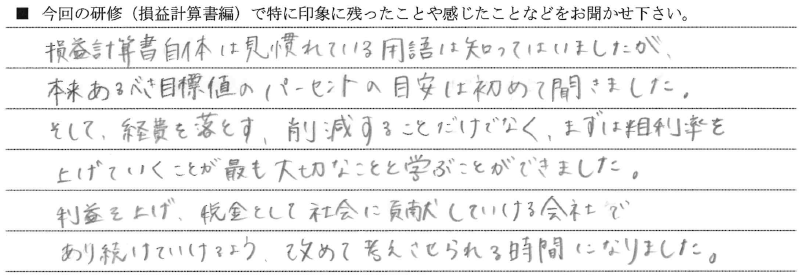 ■ 今回の研修（損益計算書編）で特に印象に残ったことや感じたことなどをお聞かせ下さい。
損益計算書自体は見慣れている用語は知ってはいましたが、
本来あるべき目標値のパーセントの目安は初めて聞きました。
そして、経費を落とす、削減することだけでなく、まずは粗利率を
上げていくことが最も大切なことと学ぶことができました。
利益を上げ、税金として社会に貢献していける会社で
あり続けていけるよう、改めて考えさせられる時間になりました。